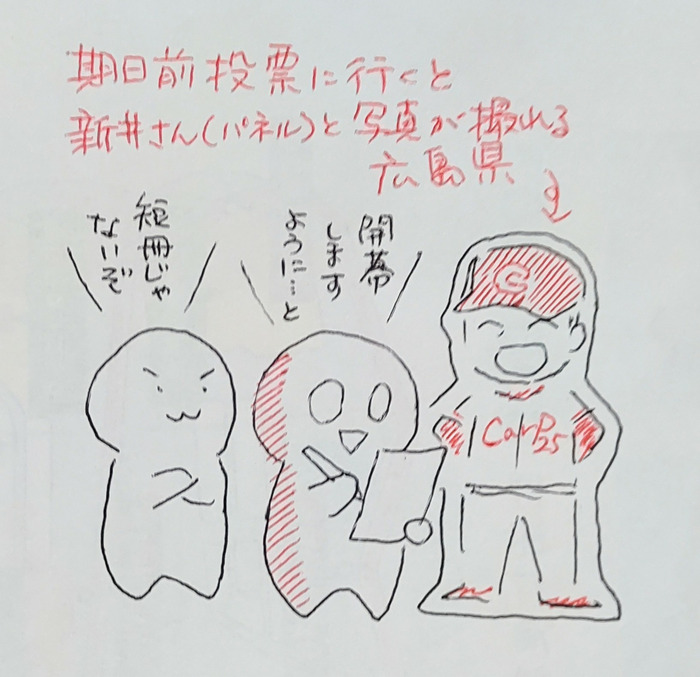 期日前投票に行くと
新井さん(パネル)と写真が撮れる
広島県
短冊じゃ
ないぞ
開幕
します
ように…と
C
Carp
25